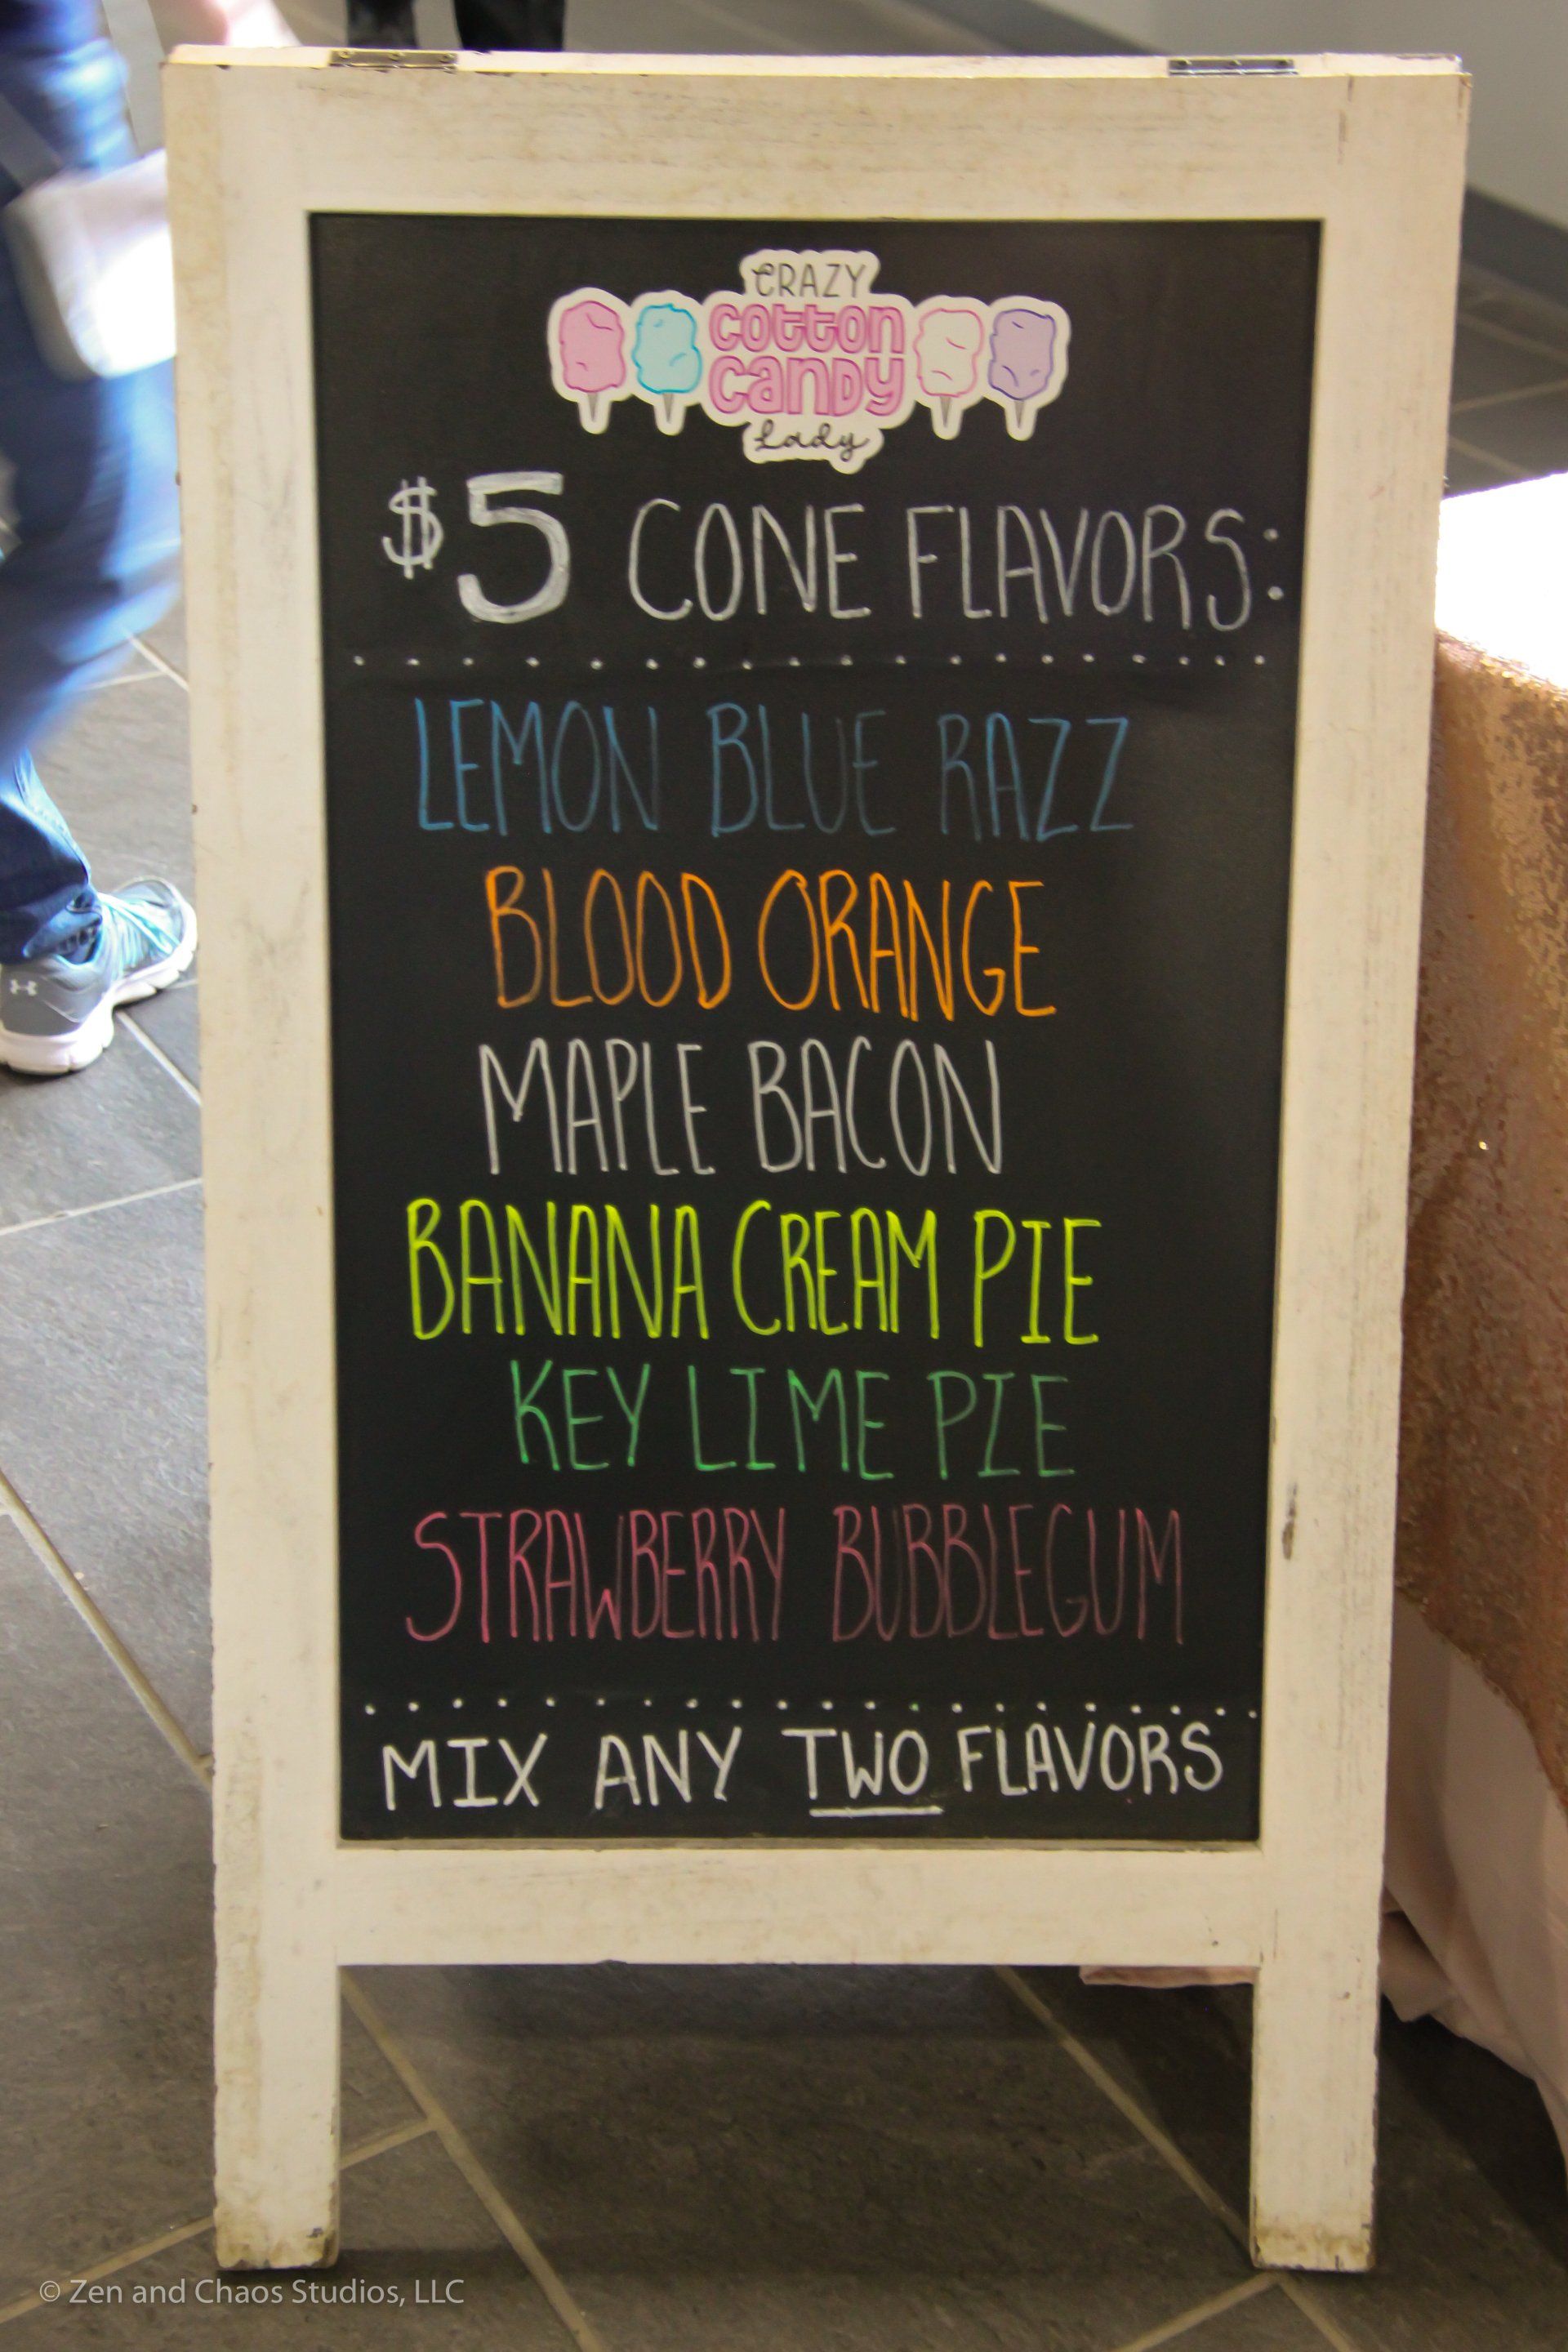 CRAZY
cotton
candy
Lady
$5 CONE FLAVORS:
LEMON BLUE RAZZ
BLOOD ORANGE
MAPLE BACON
BANANA CREAM PIE
KEY LIME PIE
STRAWBERRY BUBBLEGUM
MIX ANY TWO FLAVORS
© Zen and Chaos Studios, LLC